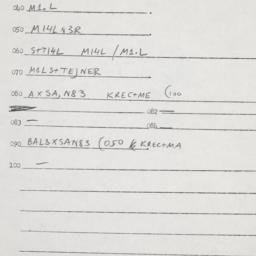 040 M1.L
050 M14L43R
060 S+T14L M14L/M1.L
070 M1LS+TEJNER
080 AXSA,N83 KREC+ME (100
082 —
083 —
084 —
090 BAL3XSAN83 (050 KREC+MA
100 —